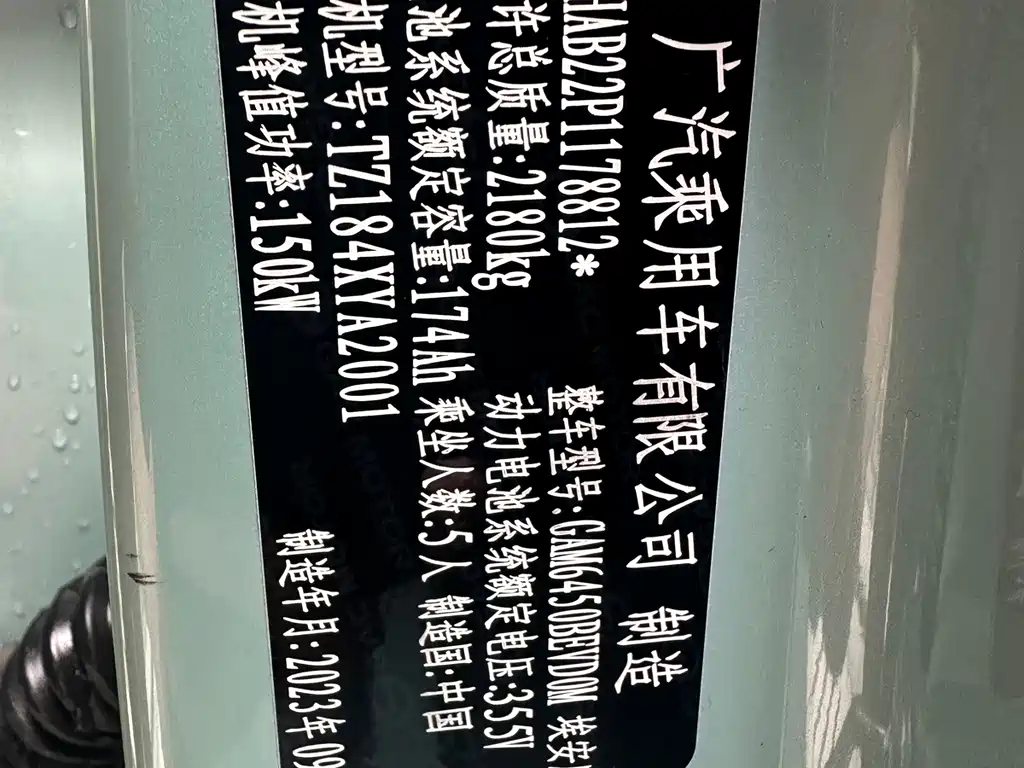 广汽乘用车有限公司 制造
HAB22P1178812* 整车型号:GAM6450BEVD0M 埃安
许总质量:2180kg 动力电池系统额定电压:355V
池系统额定容量:174Ah 乘坐人数:5人 制造国:中国
机型号:TZ184XYA2001
机峰值功率:150kW 制造年月:2023年09